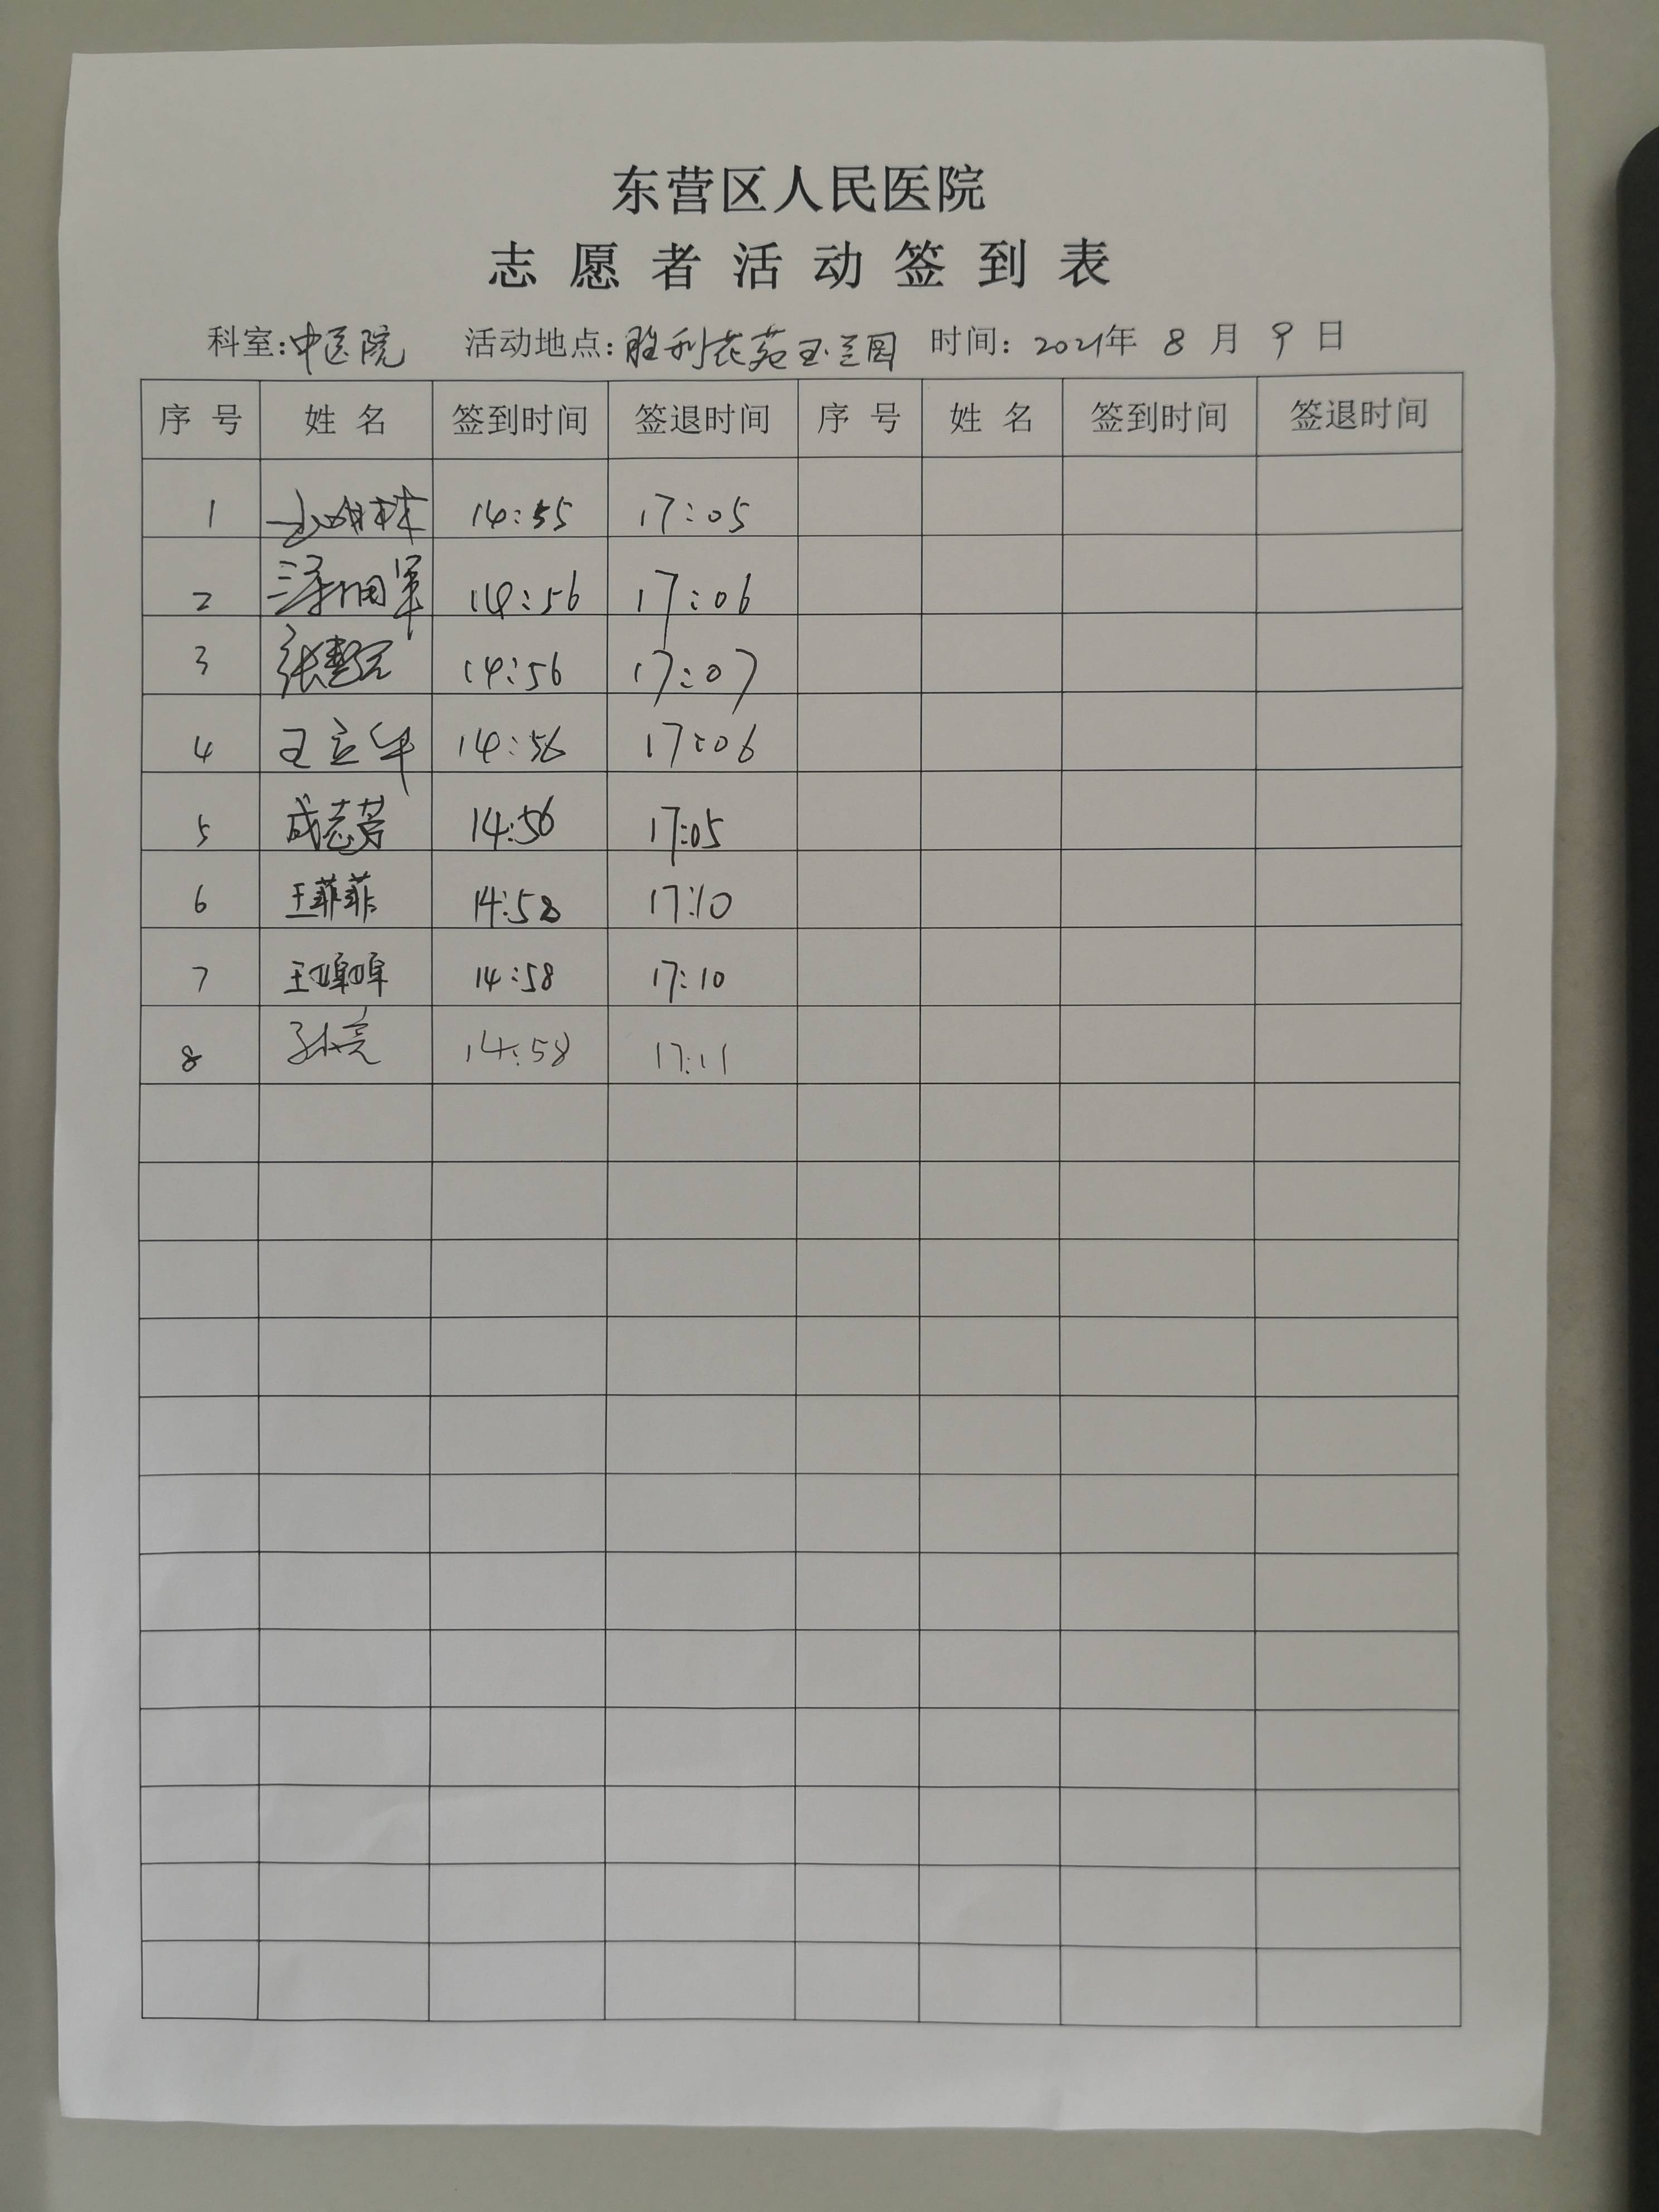 东营区人民医院
志愿者活动签到表
科室:中医院 活动地点:胜利花苑玉兰园 时间: 2021年 8 月 9 日
序号 姓名 签到时间 签退时间 序号 姓名 签到时间 签退时间
1 14:55 17:05
2 14:56 17:06
3 14:56 17:07
4 王立华 14:56 17:06
5 成志芳 14:56 17:05
6 王菲菲 14:58 17:10
7 王 14:58 17:10
8 孙亮 14:58 17:11